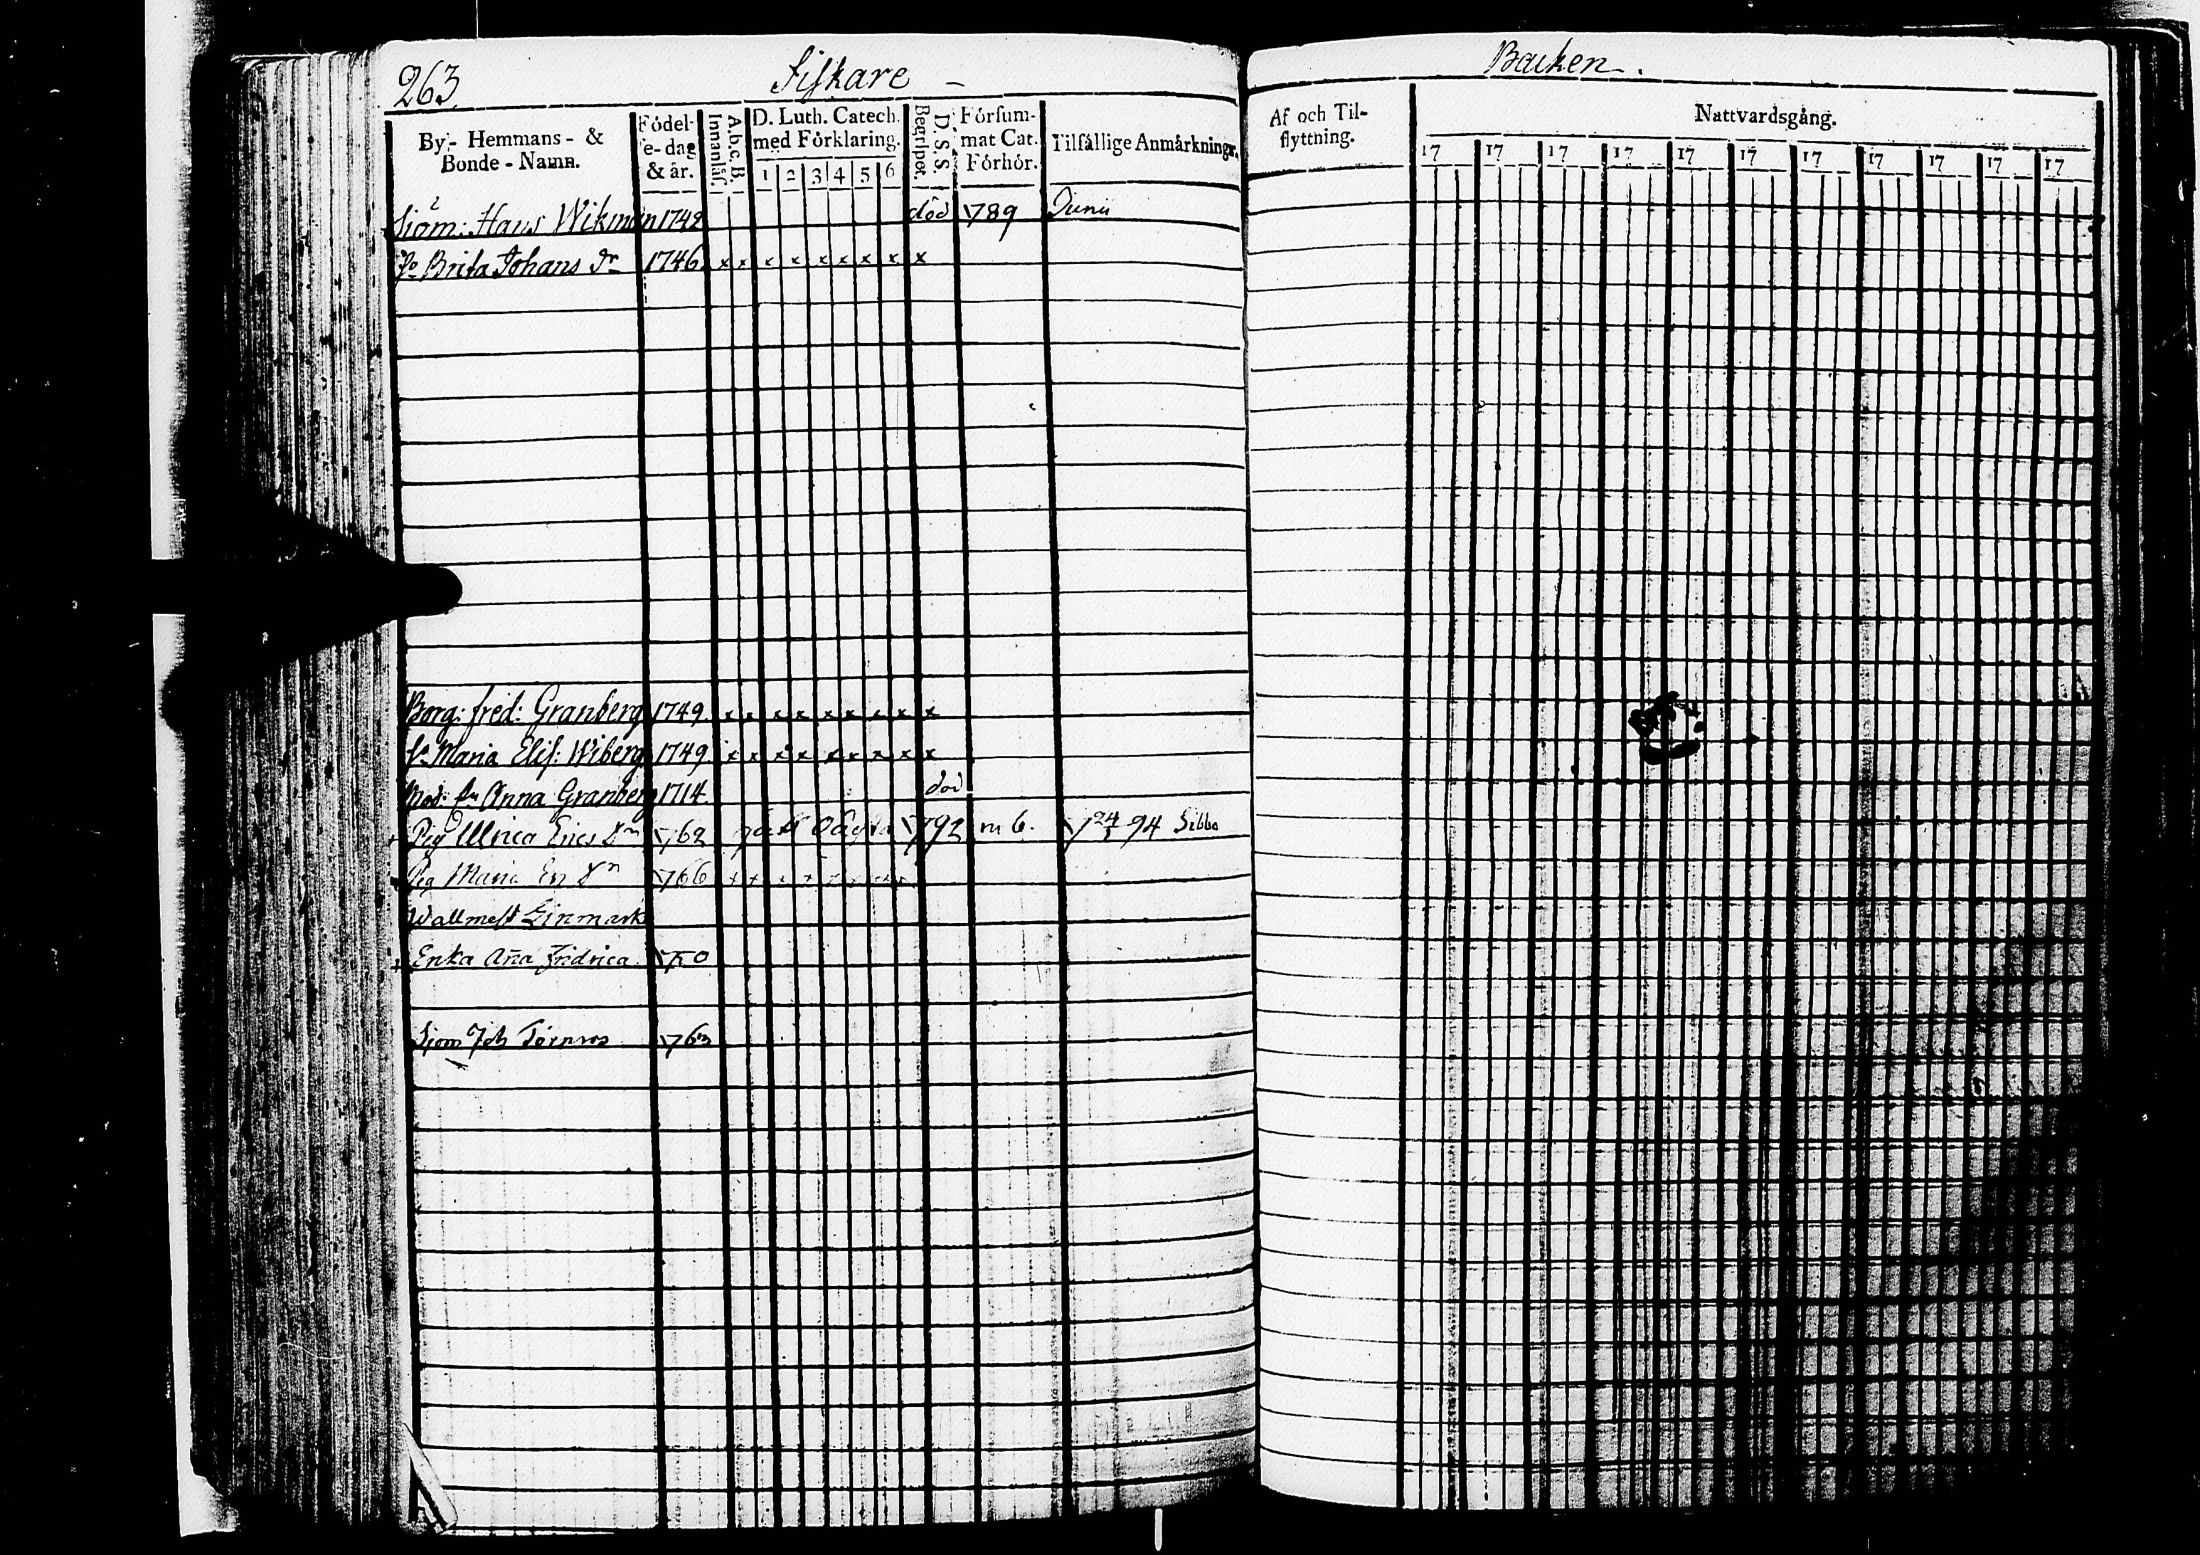 263
Fiskare –
By- Hemmans- & Bonde-Namn.
Födelse-dag & år.
A.b.c.B. Innanläs.
D. Luth. Catech. med Förklaring.
1 2 3 4 5 6
D. S. S. Begripet.
Försummat Cat. Förhör.
Tilfällige Anmärkningr.
2
Sjöm: Hans Wikman 1742 död 1789 Junii
h:o Brita Johans dr 1746 x x x x x x x x x
Borg: fred: Granberg 1749 x x x x x x x x x
h:o Maria Elis: Wiberg 1749 x x x x x x x x x
Mod: fru Anna Granberg 1714 död
Pig Ulrica Erics dr 1762 1792 m 6. 94 Sibbo
Pig Maria Er dr 1766 x x x x x x x x
Wallmest Linmark
Enka Aña Fredrica
Sjöm Joh 1763
Backen.
Af och Til-flyttning.
Nattvardsgång.
17 17 17 17 17 17 17 17 17 17 17